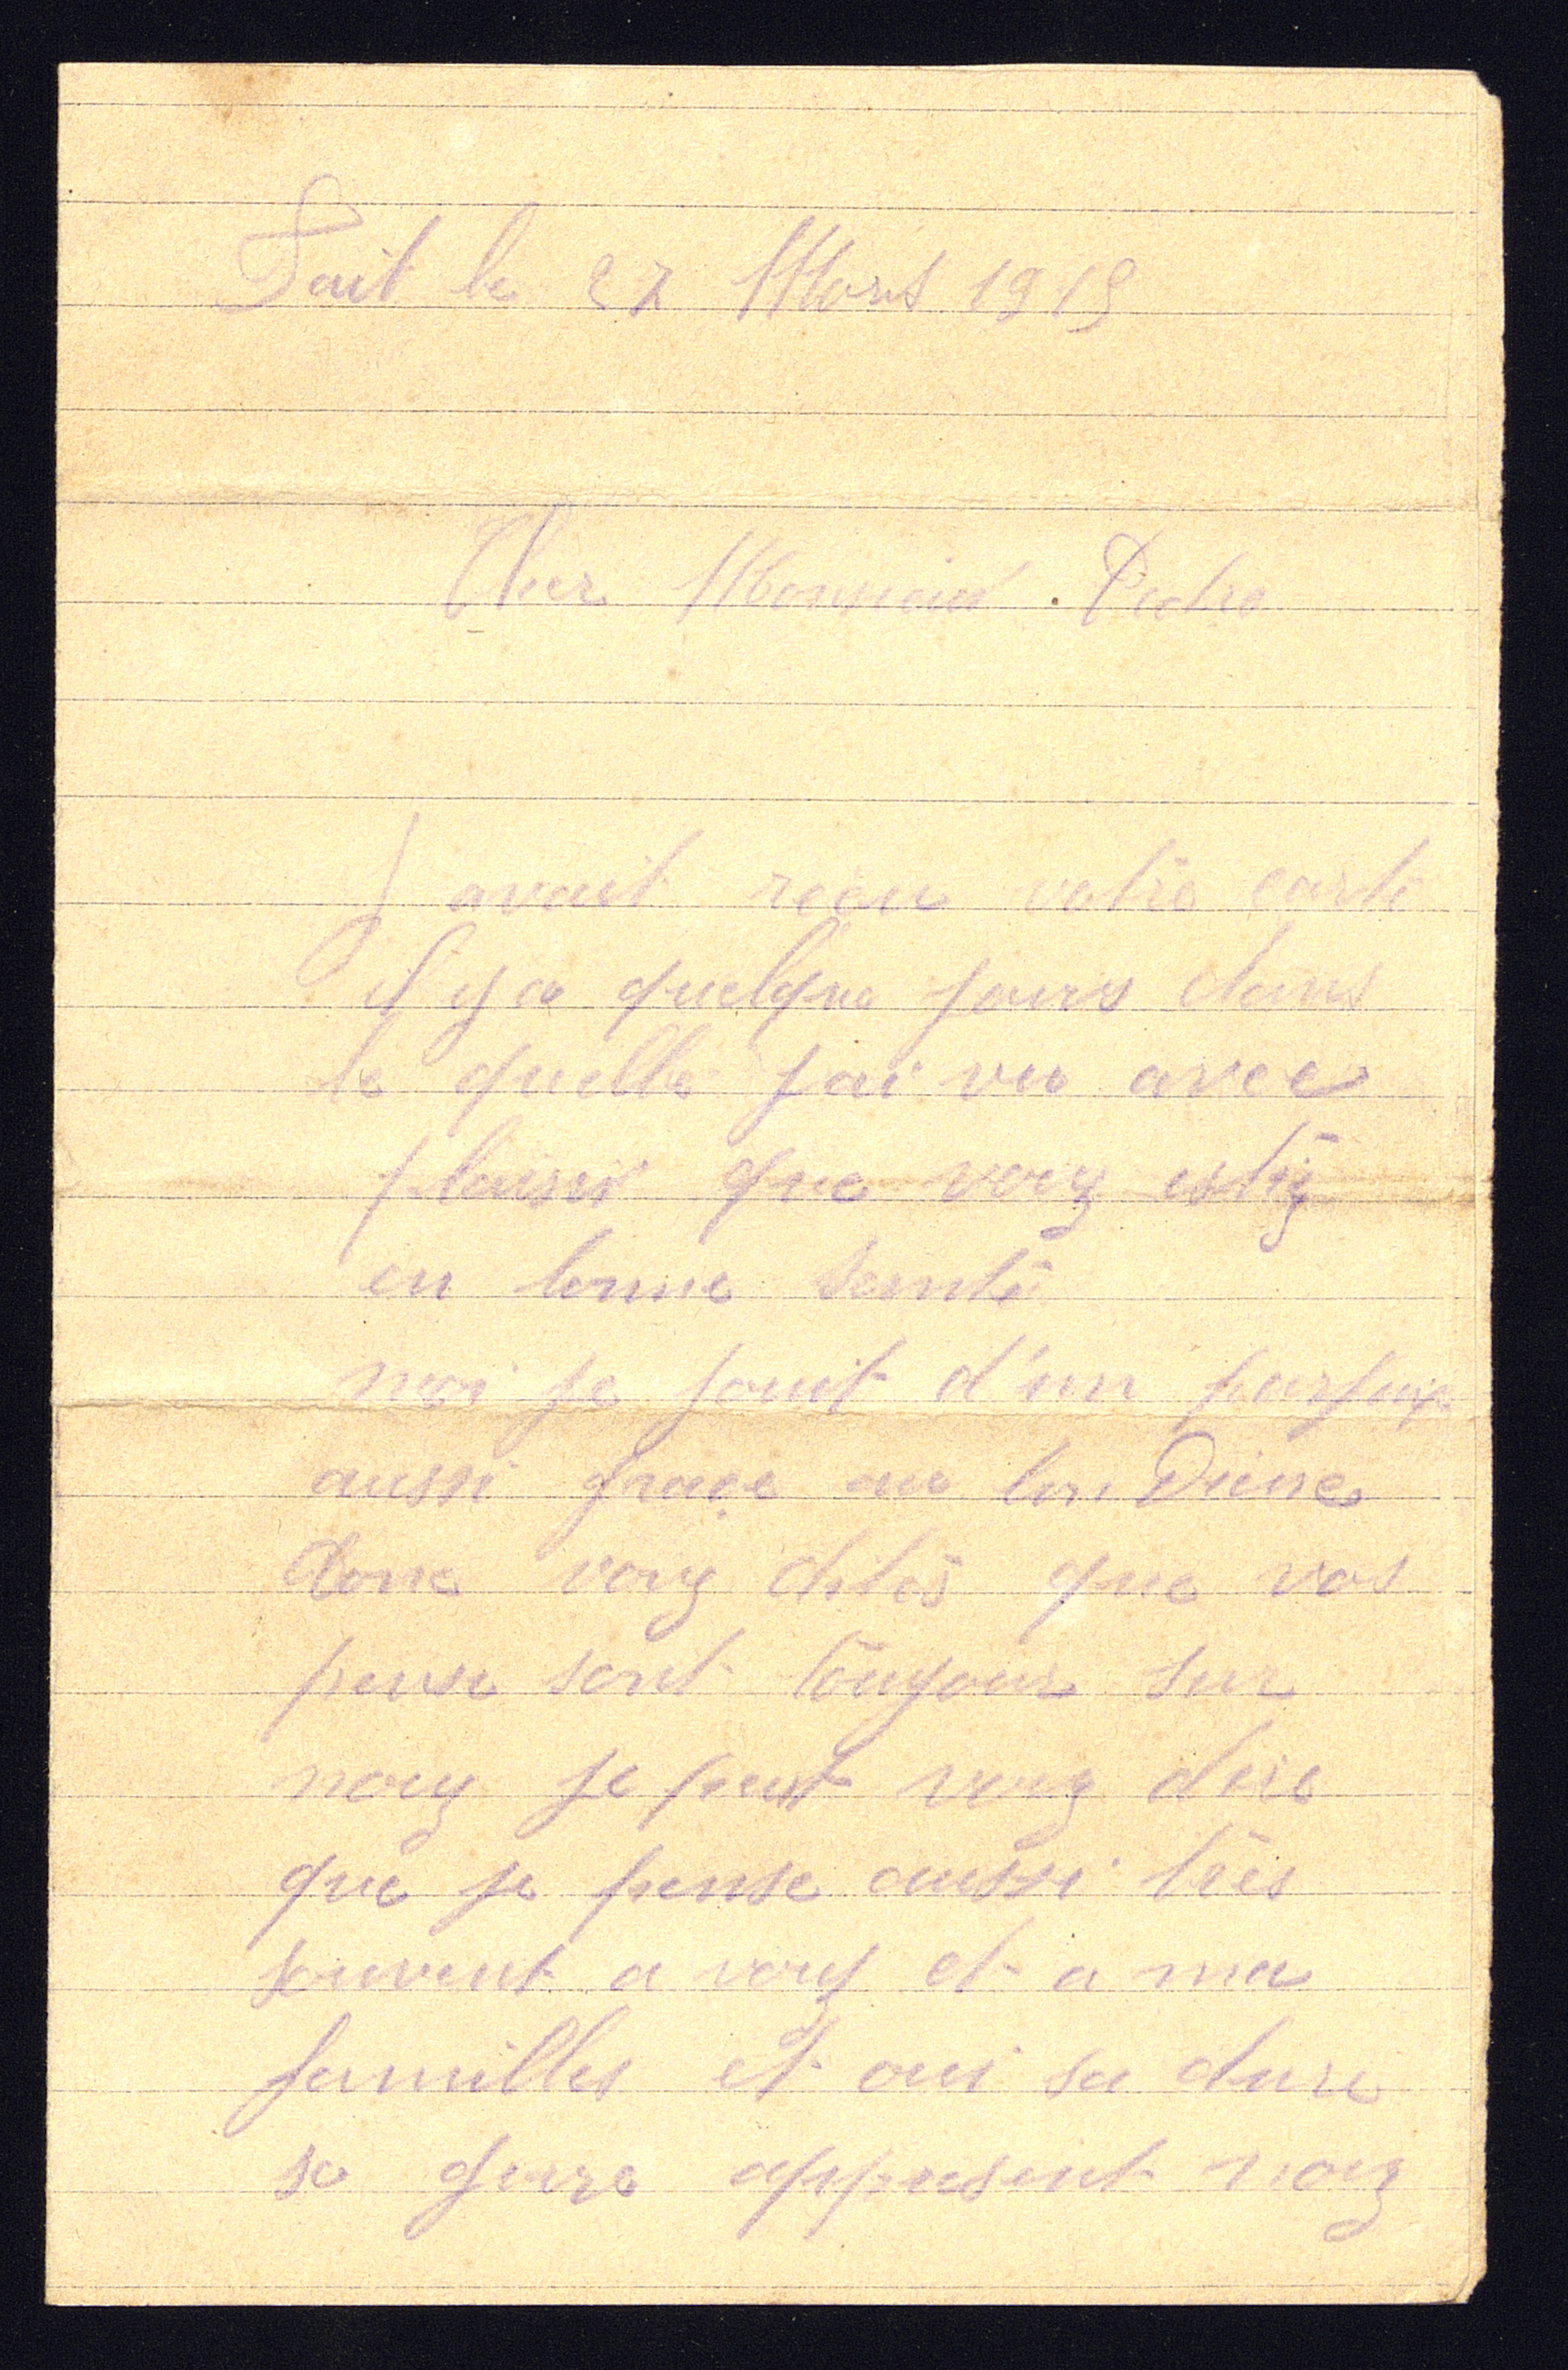 Fait le 27 Mars 1919
Cher Monsieur Pedro
J avait reçu votre carte
il y a quelque jours dans
le quelle j ai vu avec
plaisir que vouz estiéz
en bonne senté
moi je jouit d'un parfaix
aussi graçe au bon Dieue
donc vouz dites que vos
pense sont toujour sur
nouz je peut vouz dire
que je pense aussi très
souvent a vouz et a ma
familles et oui sa dure
se gure appresent nouz